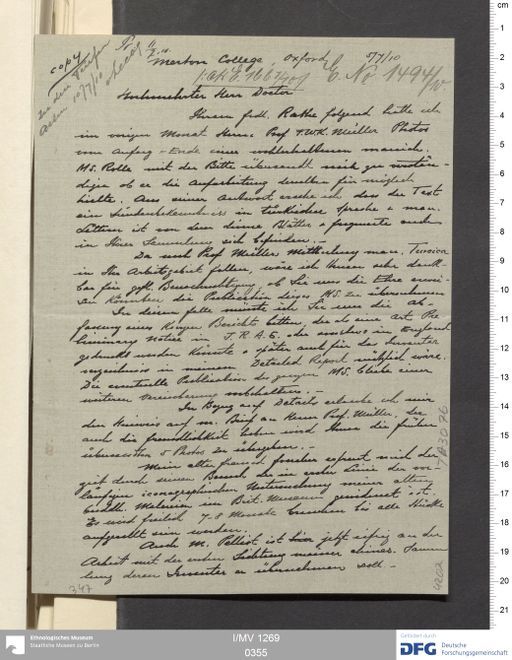 copy
zu den Turfan
Akten 10/7/10
Merton College, Oxford
5/7/10
C. No 1494/10
Hochverehrter Herr Doctor
Ihrem frdl. Rathe folgend hatte ich
im vorigen Monat Herrn Prof F.W.K. Müller Photos
vom Anfang + Ende einer wohlerhaltenen manich.
MS. Rolle mit der Bitte übersandt mich zu verstän-
digen ob er die Aufarbeitung derselben für möglich
hielte. Aus seiner Antwort ersehe ich dass der Text
ein Sündenbekenntniss in türkischer Sprache + man.
Lettern ist von dem dünne Blätter + fragmente auch
in Ihrer Sammlung sich befinden. –
Da nach Prof Müllers Mittheilung man. Turcica
in Ihr Arbeitsgebiet fallen, wäre ich Ihnen sehr dank-
bar für gefl. Benachrichtigung, ob Sie uns die Ehre erwei-
sen könnten die Publication dieses MS. zu übernehmen
In diesem falle müsste ich Sie um die Ab-
fassung eines kurzen Berichts bitten, der als eine Art Pre
liminary Notice im J.R.A.S. oder anderswo in England
gedruckt werden könnte + später auch für das Inventar
verzeichniss in meinem Detailed Report nützlich wäre.
Die eventuelle Publication des ganzen MS. bliebe einer
weiteren Vereinbarung vorbehalten. –
In Bezug auf Details erlaube ich mir
den Hinweis auf m. Brief an Herrn Prof. Müller, der
auch die freundlichkeit haben wird Ihnen die früher
übersandten 5 Photos zu übergeben. –
Mein alter freund foucher erfreut mich der
zeit durch seinen Besuch, der in erster Linie der vor-
läufigen iconographischen Untersuchung meiner alten
buddh. Malereien im Brit. Museum gewidmet ist.
Es wird freilich 7-8 Monate brauchen bis alle Stücke
aufgerollt sein werden.
Auch M. Pelliot ist hier jetzt eifrig an der
Arbeit mit der ersten Sichtung meiner chines. Samm
lung deren Inventar er übernehmen soll. –
347
4202
I/MV 1269
0355
Ethnologisches Museum
Staatliche Museen zu Berlin
Gefördert durch
DFG
Deutsche
Forschungsgemeinschaft
cm
1
2
3
4
5
6
7
8
9
10
11
12
13
14
15
16
17
18
19
20
21